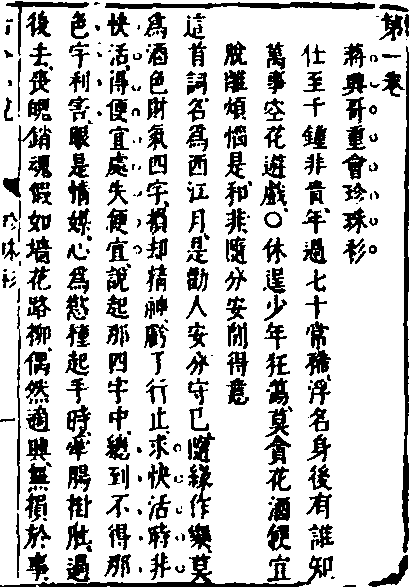 第一卷
蔣興哥重會珍珠衫
仕至千鍾非貴、年過七十常稀、浮名身後有誰知
萬事空花遊戲、〇休逞少年狂蕩、莫貪花酒便宜
脫離煩惱是和非、隨分安閒得意
這首詞、名爲西江月、是勸人安分守已、隨緣作樂、莫
爲酒色財氣四字、損却精神、虧了行止、求快活時非
快活、得便宜處失便宜、說起那四字中、總到不得那
色字利害、眼是情媒、心爲慾種、起手時、牽腸掛肚、過
後去、喪魄銷魂、假如墻花路柳、偶然適興、無損於事、
珍珠衫
一